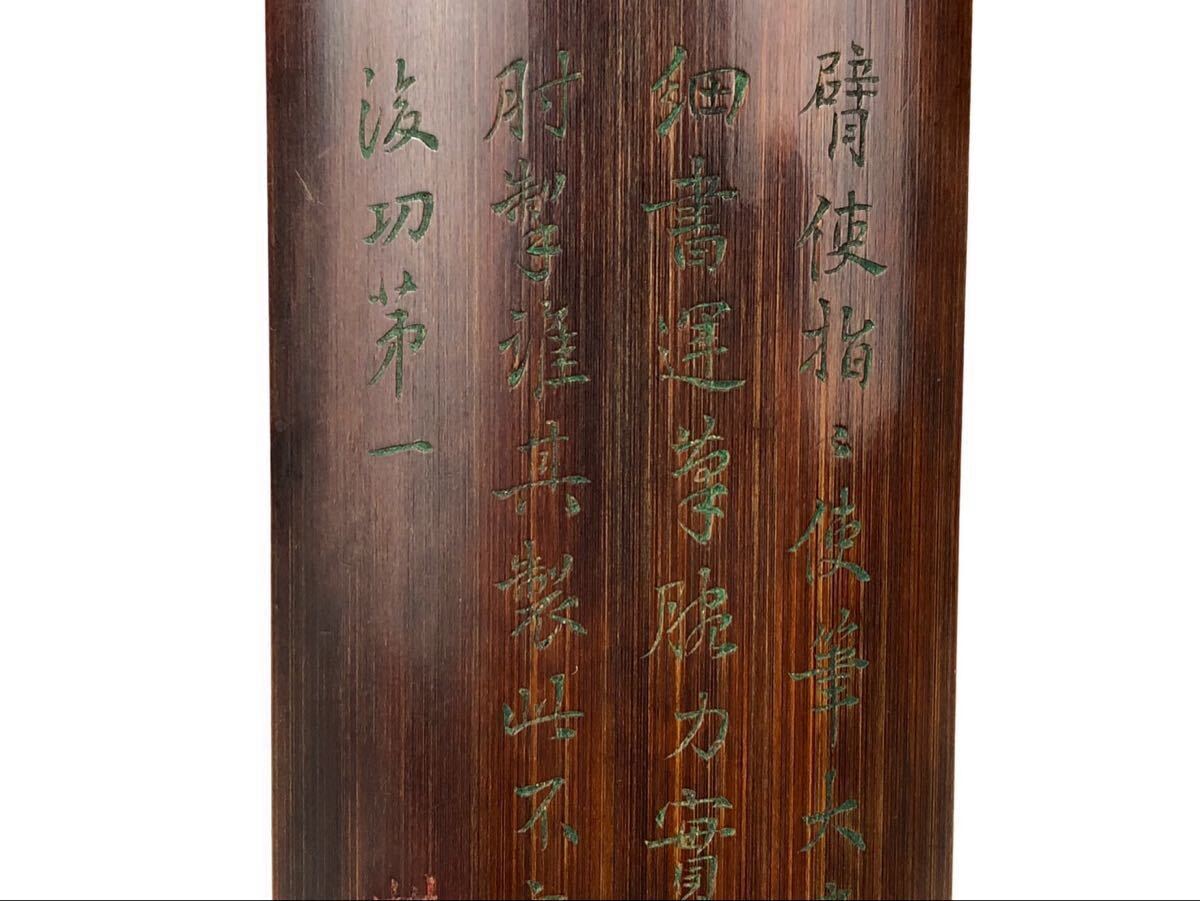 臂使指〻使筆大
細書運掌腕力實
肘掣誰其製此不
後功第一